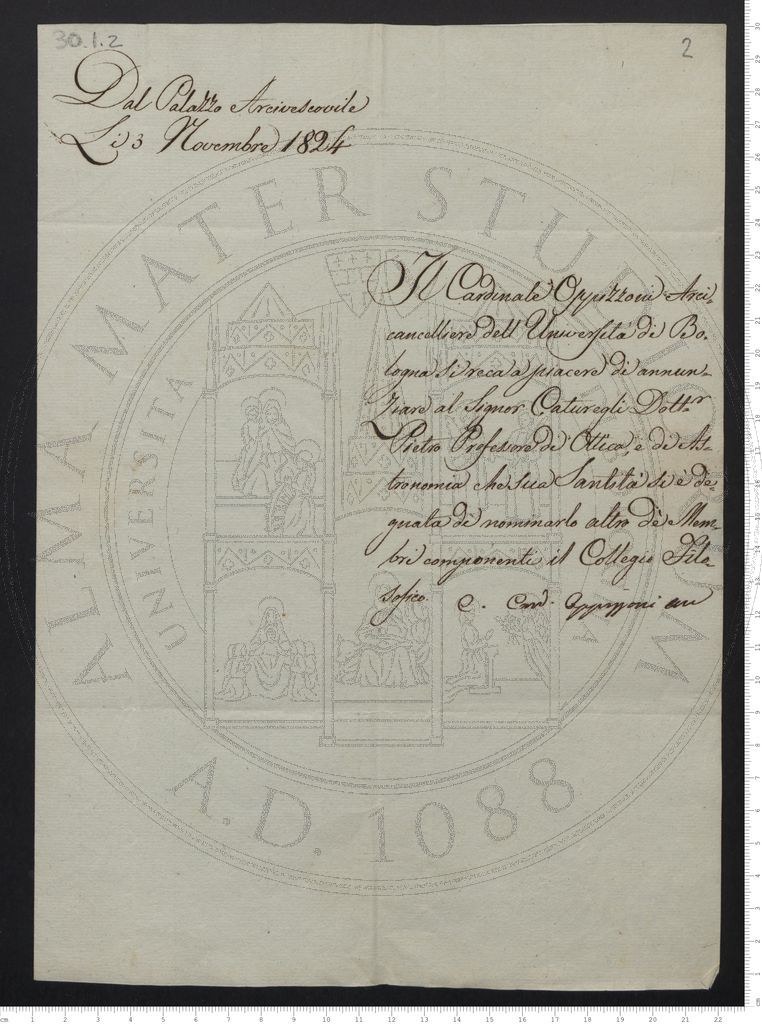 30.1.2
2
Dal Palazzo Arcivescovile
Li 3 Novembre 1824
Il Cardinale Oppizzoni Arci-
cancelliere dell'Università di Bo-
logna si reca a piacere di annun-
ziare al Signor Caturegli Dott.r
Pietro Professore di Ottica, e di As-
tronomia che Sua Santità si è de-
gnata di nominarlo altro dè Mem-
bri componenti il Collegio Filo-
sofico.
C. Card. Oppizzoni
ALMA MATER STUDIORUM
UNIVERSITA
A.D. 1088